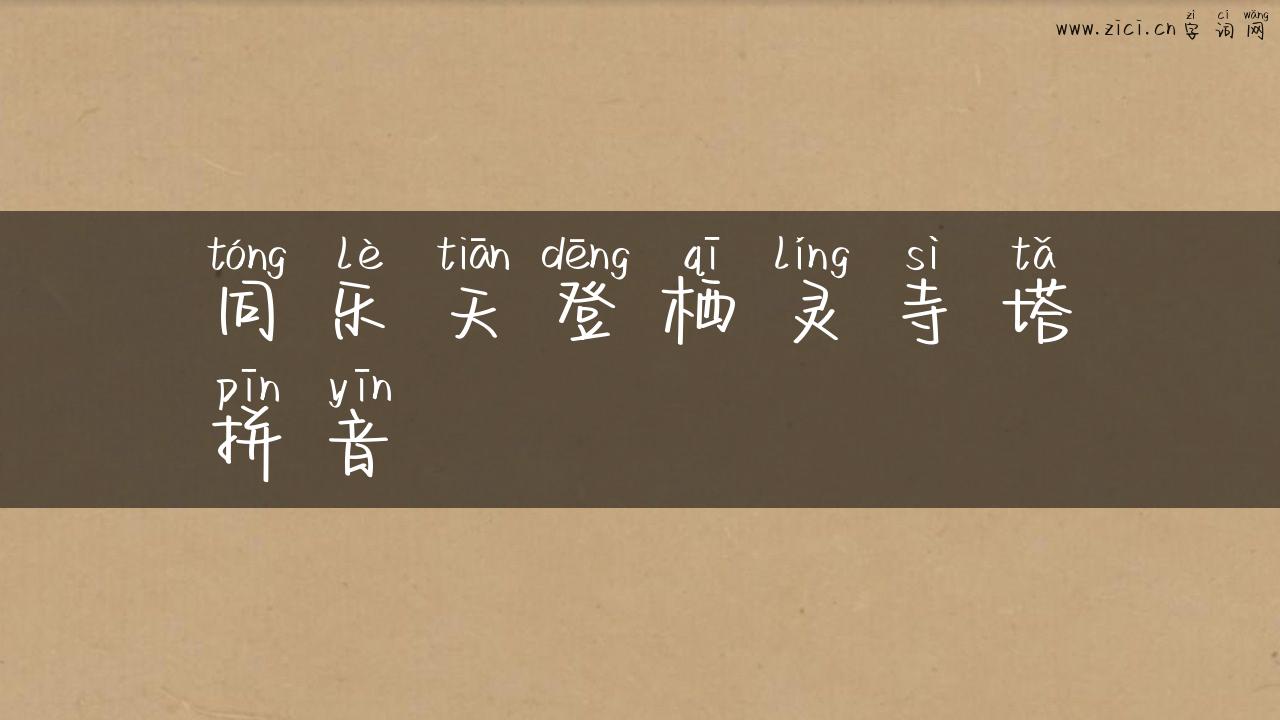 zì cí wǎng
www.zici.cn 字词网
tóng lè tiān dēng qī líng sì tǎ
同乐天登栖灵寺塔
pīn yīn
拼音